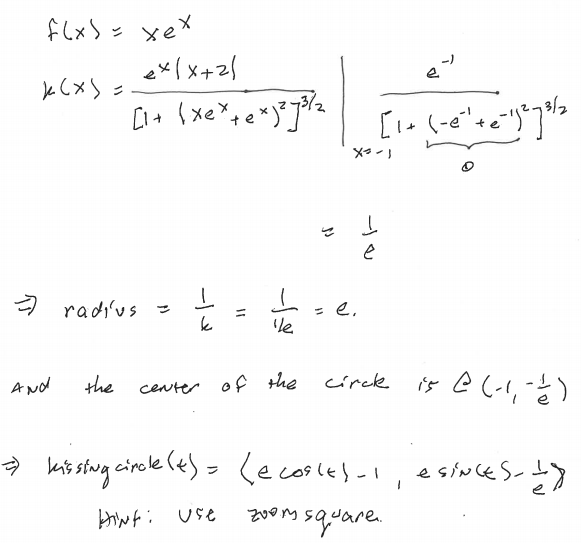 f(x) = xe^x
k(x) = e^x|x+2| / [1 + (xe^x + e^x)^2]^{3/2} |_{x=-1} e^{-1} / [1 + (-e^{-1} + e^{-1})^2]^{3/2}
0
= 1/e
⇒ radius = 1/k = 1/(1/e) = e.
AND the center of the circle is @ (-1, -1/e)
⇒ kissing circle(t) = (e cos(t) - 1, e sin(t) - 1/e)
Hint: use zoom square.